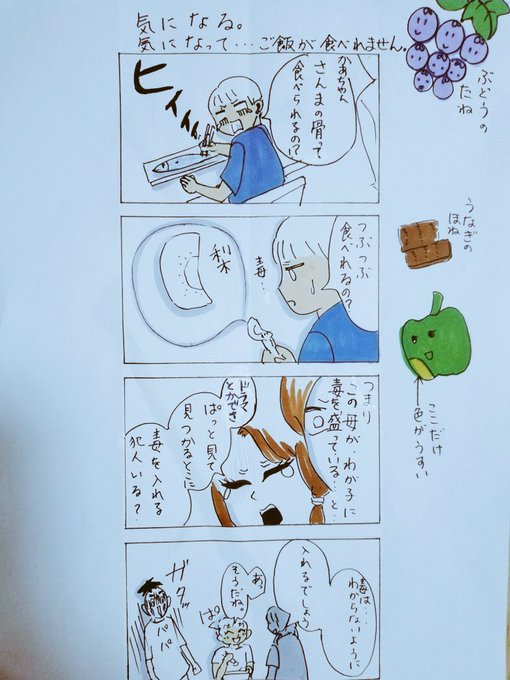 気になる。
気になって…ご飯が食べれません。
かあちゃん
さんまの骨って
食べられるの!?
ヒィィん
つぶつぶ
食べれるの?
毒…
梨
つまり
この母が、わが子に
毒を盛っている…と…
ドラマ
とかでさ
ぱっと見て
見つかるとこに
毒を入れる
犯人いる?
毒は……
わからないように
入れるでしょう
あっ
そうだね。
ぱ
ガタッ
パパ
ぶどうの
たね
うなぎの
ほね
ここだけ
色がうすい